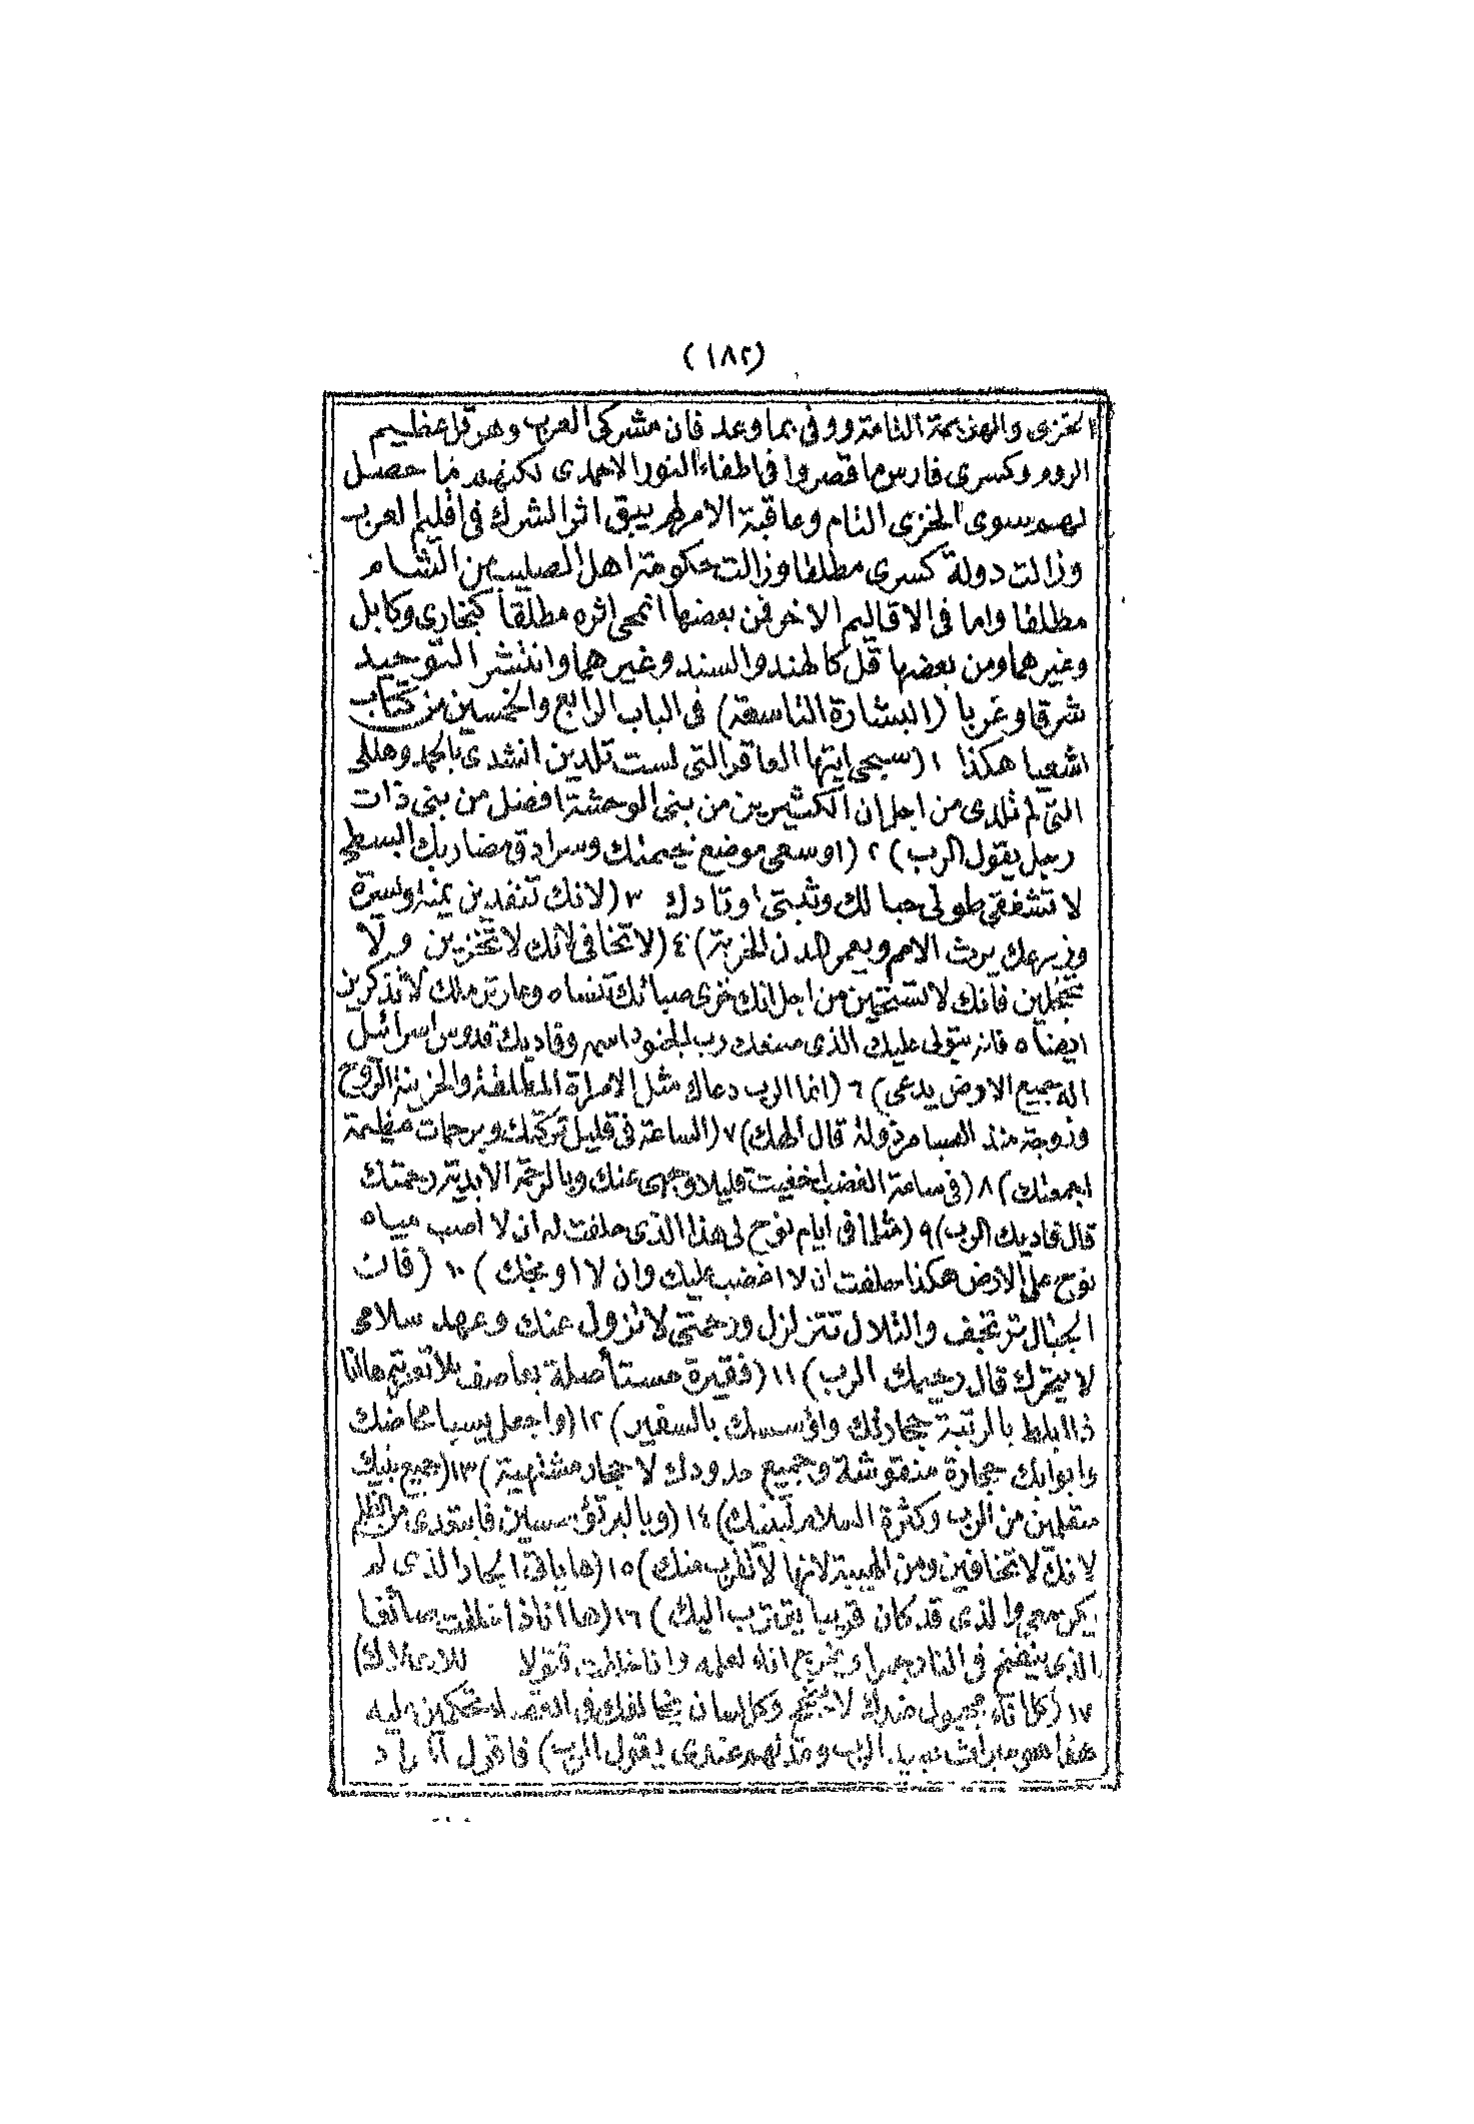 (١٨٢)
الخزى والهزيمة التامة ووفى بما وعد فان مشركى العرب وهرقل عظيم
الروم وكسرى فارس ما قصروا فى اطفاء النور الاحمدى لكنهم ما حصل
لهم سوى الخزى التام وعاقبة الامر لم يبق اثر الشرك فى اقليم العرب
وزالت دولة كسرى مطلقا وزالت حكومة اهل الصليب من الشام
مطلقا واما فى الاقاليم الاخر فمن بعضها انمحى اثره مطلقا كبخارى وكابل
وغيرهما ومن بعضها قل كالهند والسند وغيرهما وانتشر التوحيد
شرقا وغربا (البشارة التاسعة) فى الباب الرابع والخمسين من كتاب
اشعيا هكذا ١ (سبحى ايتها العاقر التى لست تلدين انشدى بالحمد وهللى
التى لم تلدى من اجل ان الكثيرين من بنى الوحشة افضل من بنى ذات
رجل يقول الرب) ٢ (اوسعى موضع خيمتك وسرادق مضاربك ابسطى
لا تشفقى طولى حبالك وثبتى اوتادك ٣ (لانك تنفدين يمنة ويسرة
وزرعك يرث الامم ويعمر المدن الخربة) ٤ (لا تخافى لانك لا تخزين ولا
تخجلين فانك لا تستحيين من اجل انك خزى صبائك تنساه وعار ترملك لا تذكرين
ايضا ٥ فانه يتولى عليك الذى صنعك رب الجنود اسمه وفاديك قدوس اسرائيل
اله جميع الارض يدعى) ٦ (انما الرب دعاك مثل الامراة المطلقة والحزينة الروح
وزوجة منذ الصبا مرذولة قال الهك) ٧ (الساعة فى قليل تركتك وبرحمات عظيمة
اجمعك) ٨ (فى ساعة الغضب اخفيت قليلا وجهى عنك وبالرحمة الابدية رحمتك
قال فاديك الرب) ٩ (مثلما فى ايام نوح لى هذا الذى حلفت له ان لا اصب مياه
نوح على الارض هكذا حلفت ان لا اغضب عليك وان لا اوبخك) ١٠ (فان
الجبال ترتجف والتلال تتزلزل ورحمتى لا تزول عنك وعهد سلامى
لا يتحرك قال رحيمك الرب) ١١ (فقيرة مستأصلة بعاصف بلا تعزية هاانا
ذا ابلط بالرتبة حجارتك واؤسسك بالسفير) ١٢ (واجعل يسبا محاضك
وابوابك حجارة منقوشة وجميع حدودك لاحجار مشتهية) ١٣ (جميع بنيك
متعلمين من الرب وكثرة السلام لبنيك) ١٤ (وبالبر تؤسسين فابتعدى من الظلم
لانك لا تخافين ومن الهيبة لانها لا تقترب منك) ١٥ (ها ياتى الجار الذى لم
يكن معى والذى قد كان قريبا يقترب اليك) ١٦ (ها اناذا خلقت صائغا
الذى ينفخ فى النار جمرا ويخرج اناء لعمله وانا خلقت قتولا للاهلاك)
١٧ (كل اناء مجبول ضدك لا ينجح وكل لسان يخالفك فى القضاء تحكمين عليه
هذا هو ميراث عبيد الرب وعدلهم عندى يقول الرب) فاقول المراد